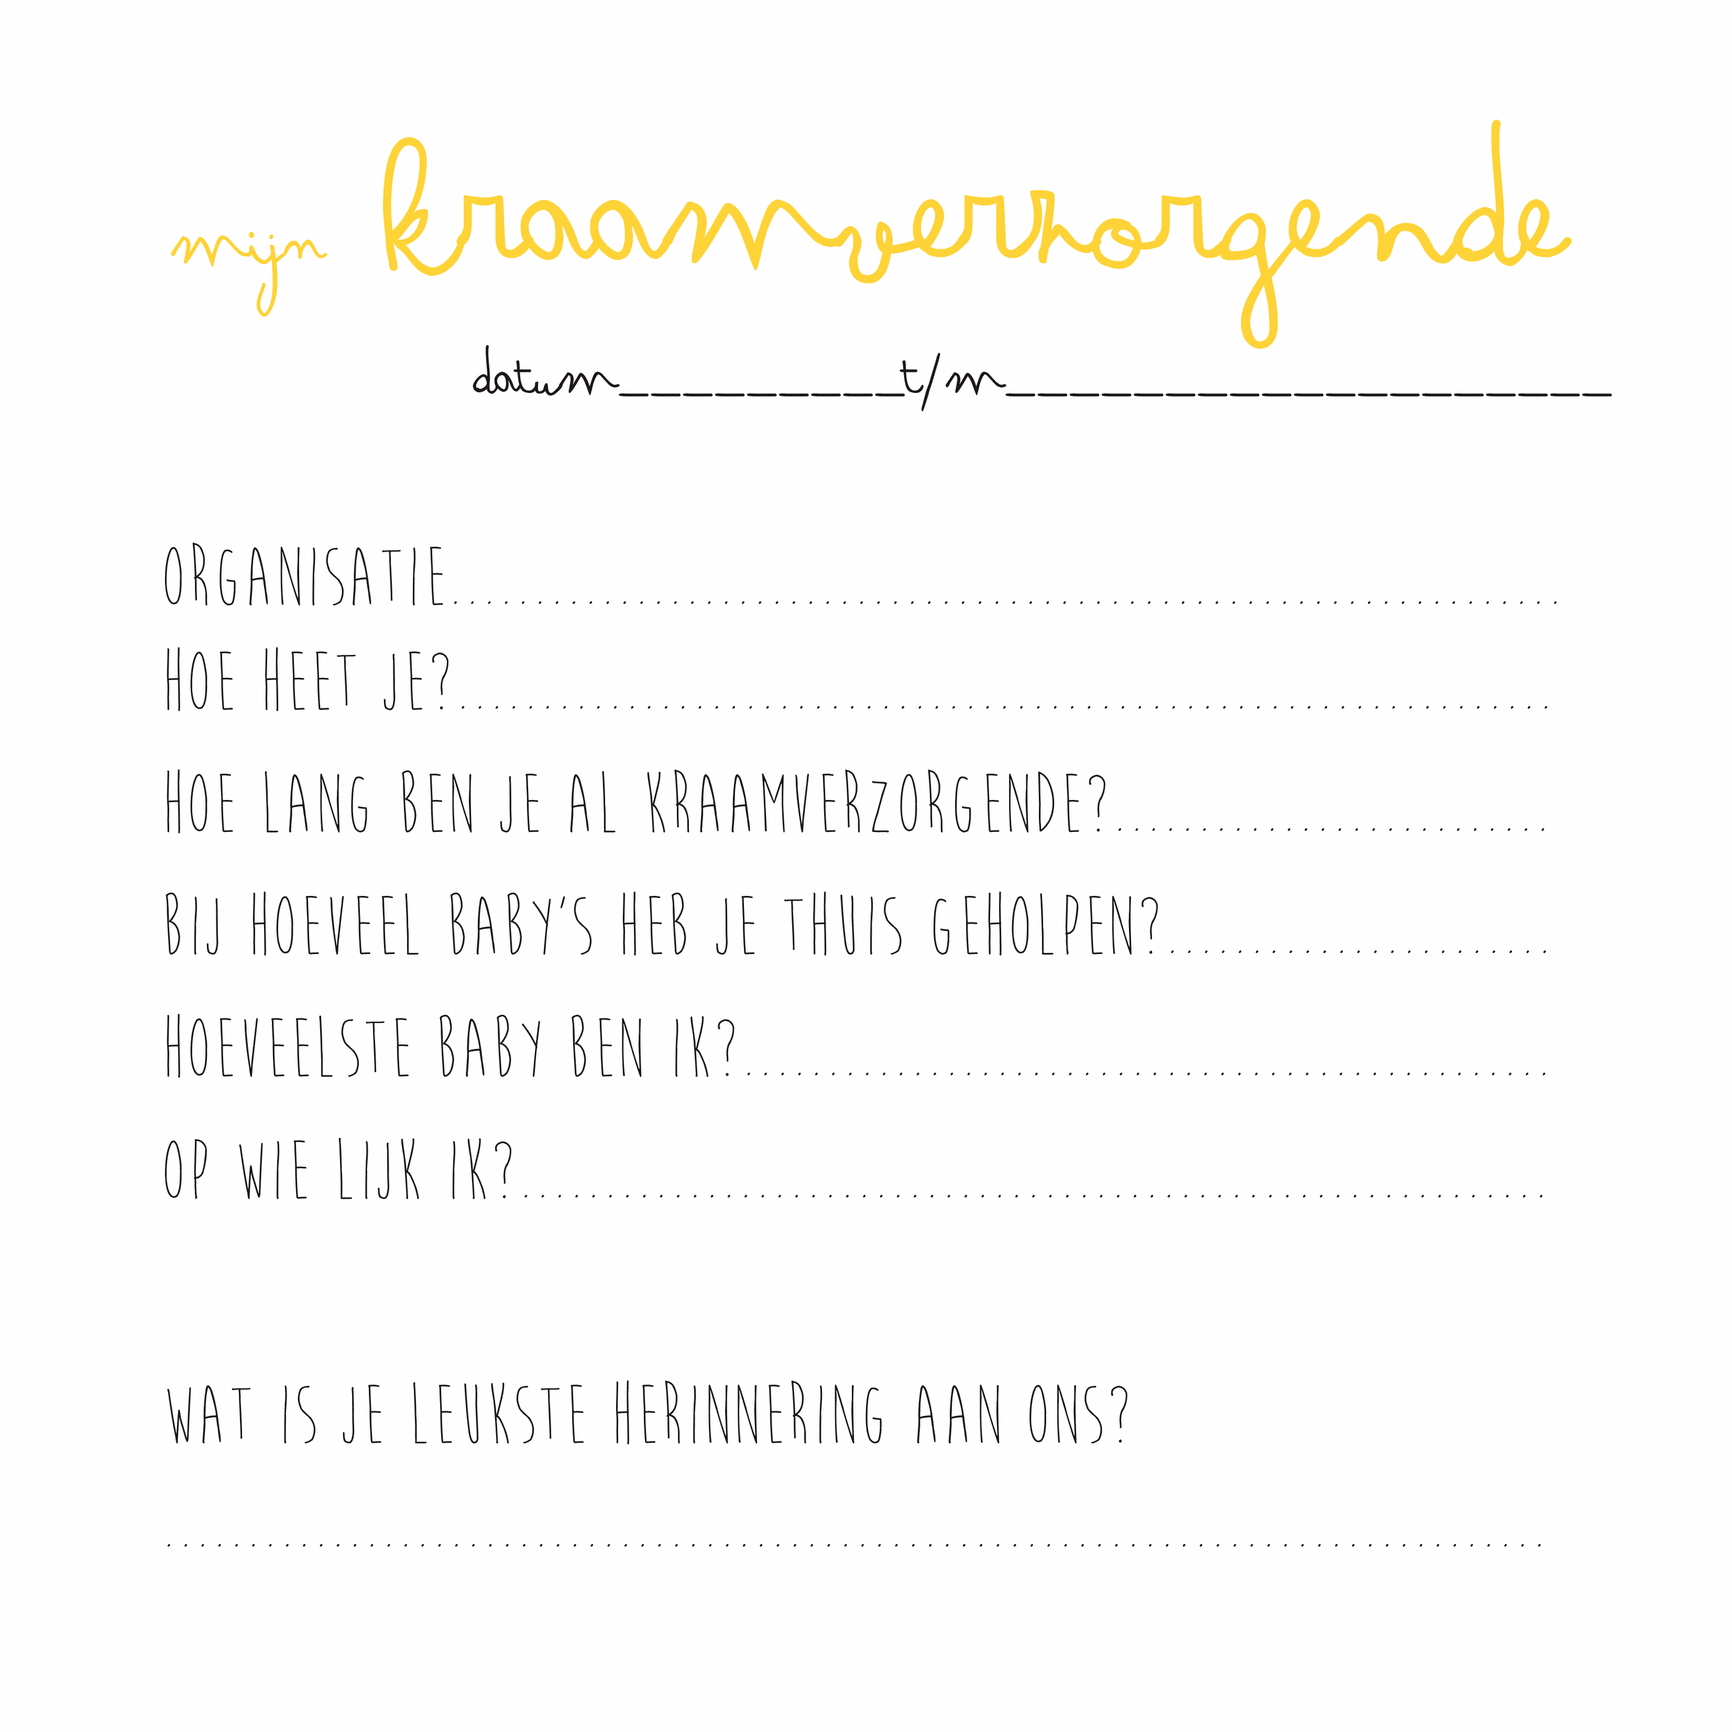 mijn kraamverzorgende
datum_________t/m___________________
ORGANISATIE....................................................................
HOE HEET JE?.................................................................
HOE LANG BEN JE AL KRAAMVERZORGENDE?..........................
BIJ HOEVEEL BABY'S HEB JE THUIS GEHOLPEN?.......................
HOEVEELSTE BABY BEN IK?................................................
OP WIE LIJK IK?.............................................................
WAT IS JE LEUKSTE HERINNERING AAN ONS?
..................................................................................